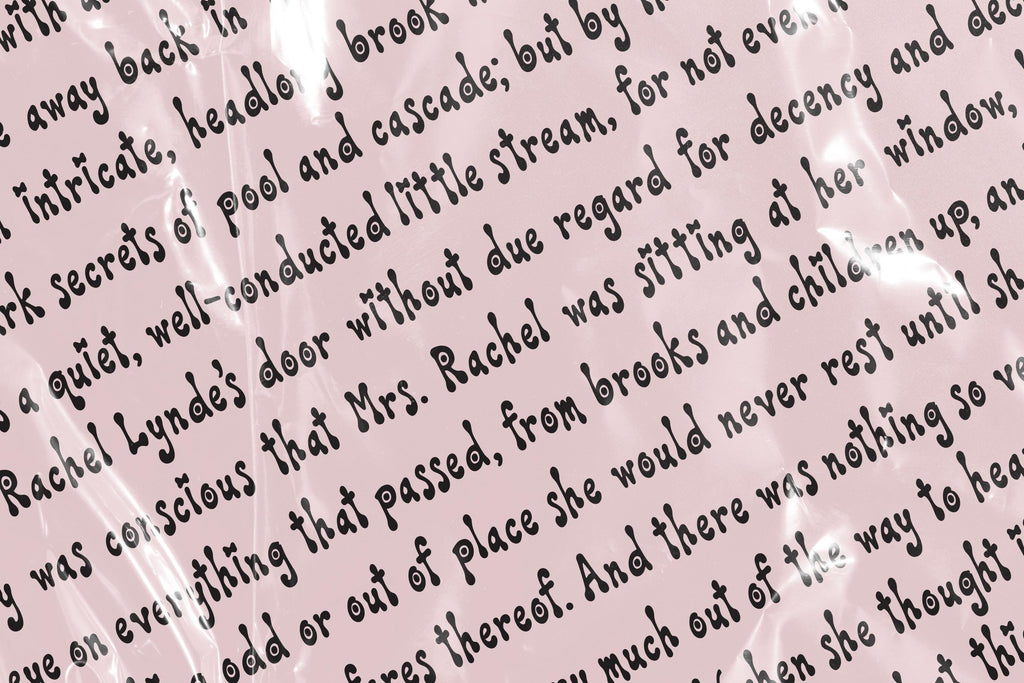 with a
e away back in
intricate, headlong brook
ark secrets of pool and cascade; but by
s a quiet, well-conducted little stream, for not even a
Rachel Lynde's door without due regard for decency and dec
y was conscious that Mrs. Rachel was sitting at her window,
eye on everything that passed, from brooks and children up, an
odd or out of place she would never rest until sh
fores thereof. And there was nothing so ve
y much out of the way to hea
hen she thought
t thi